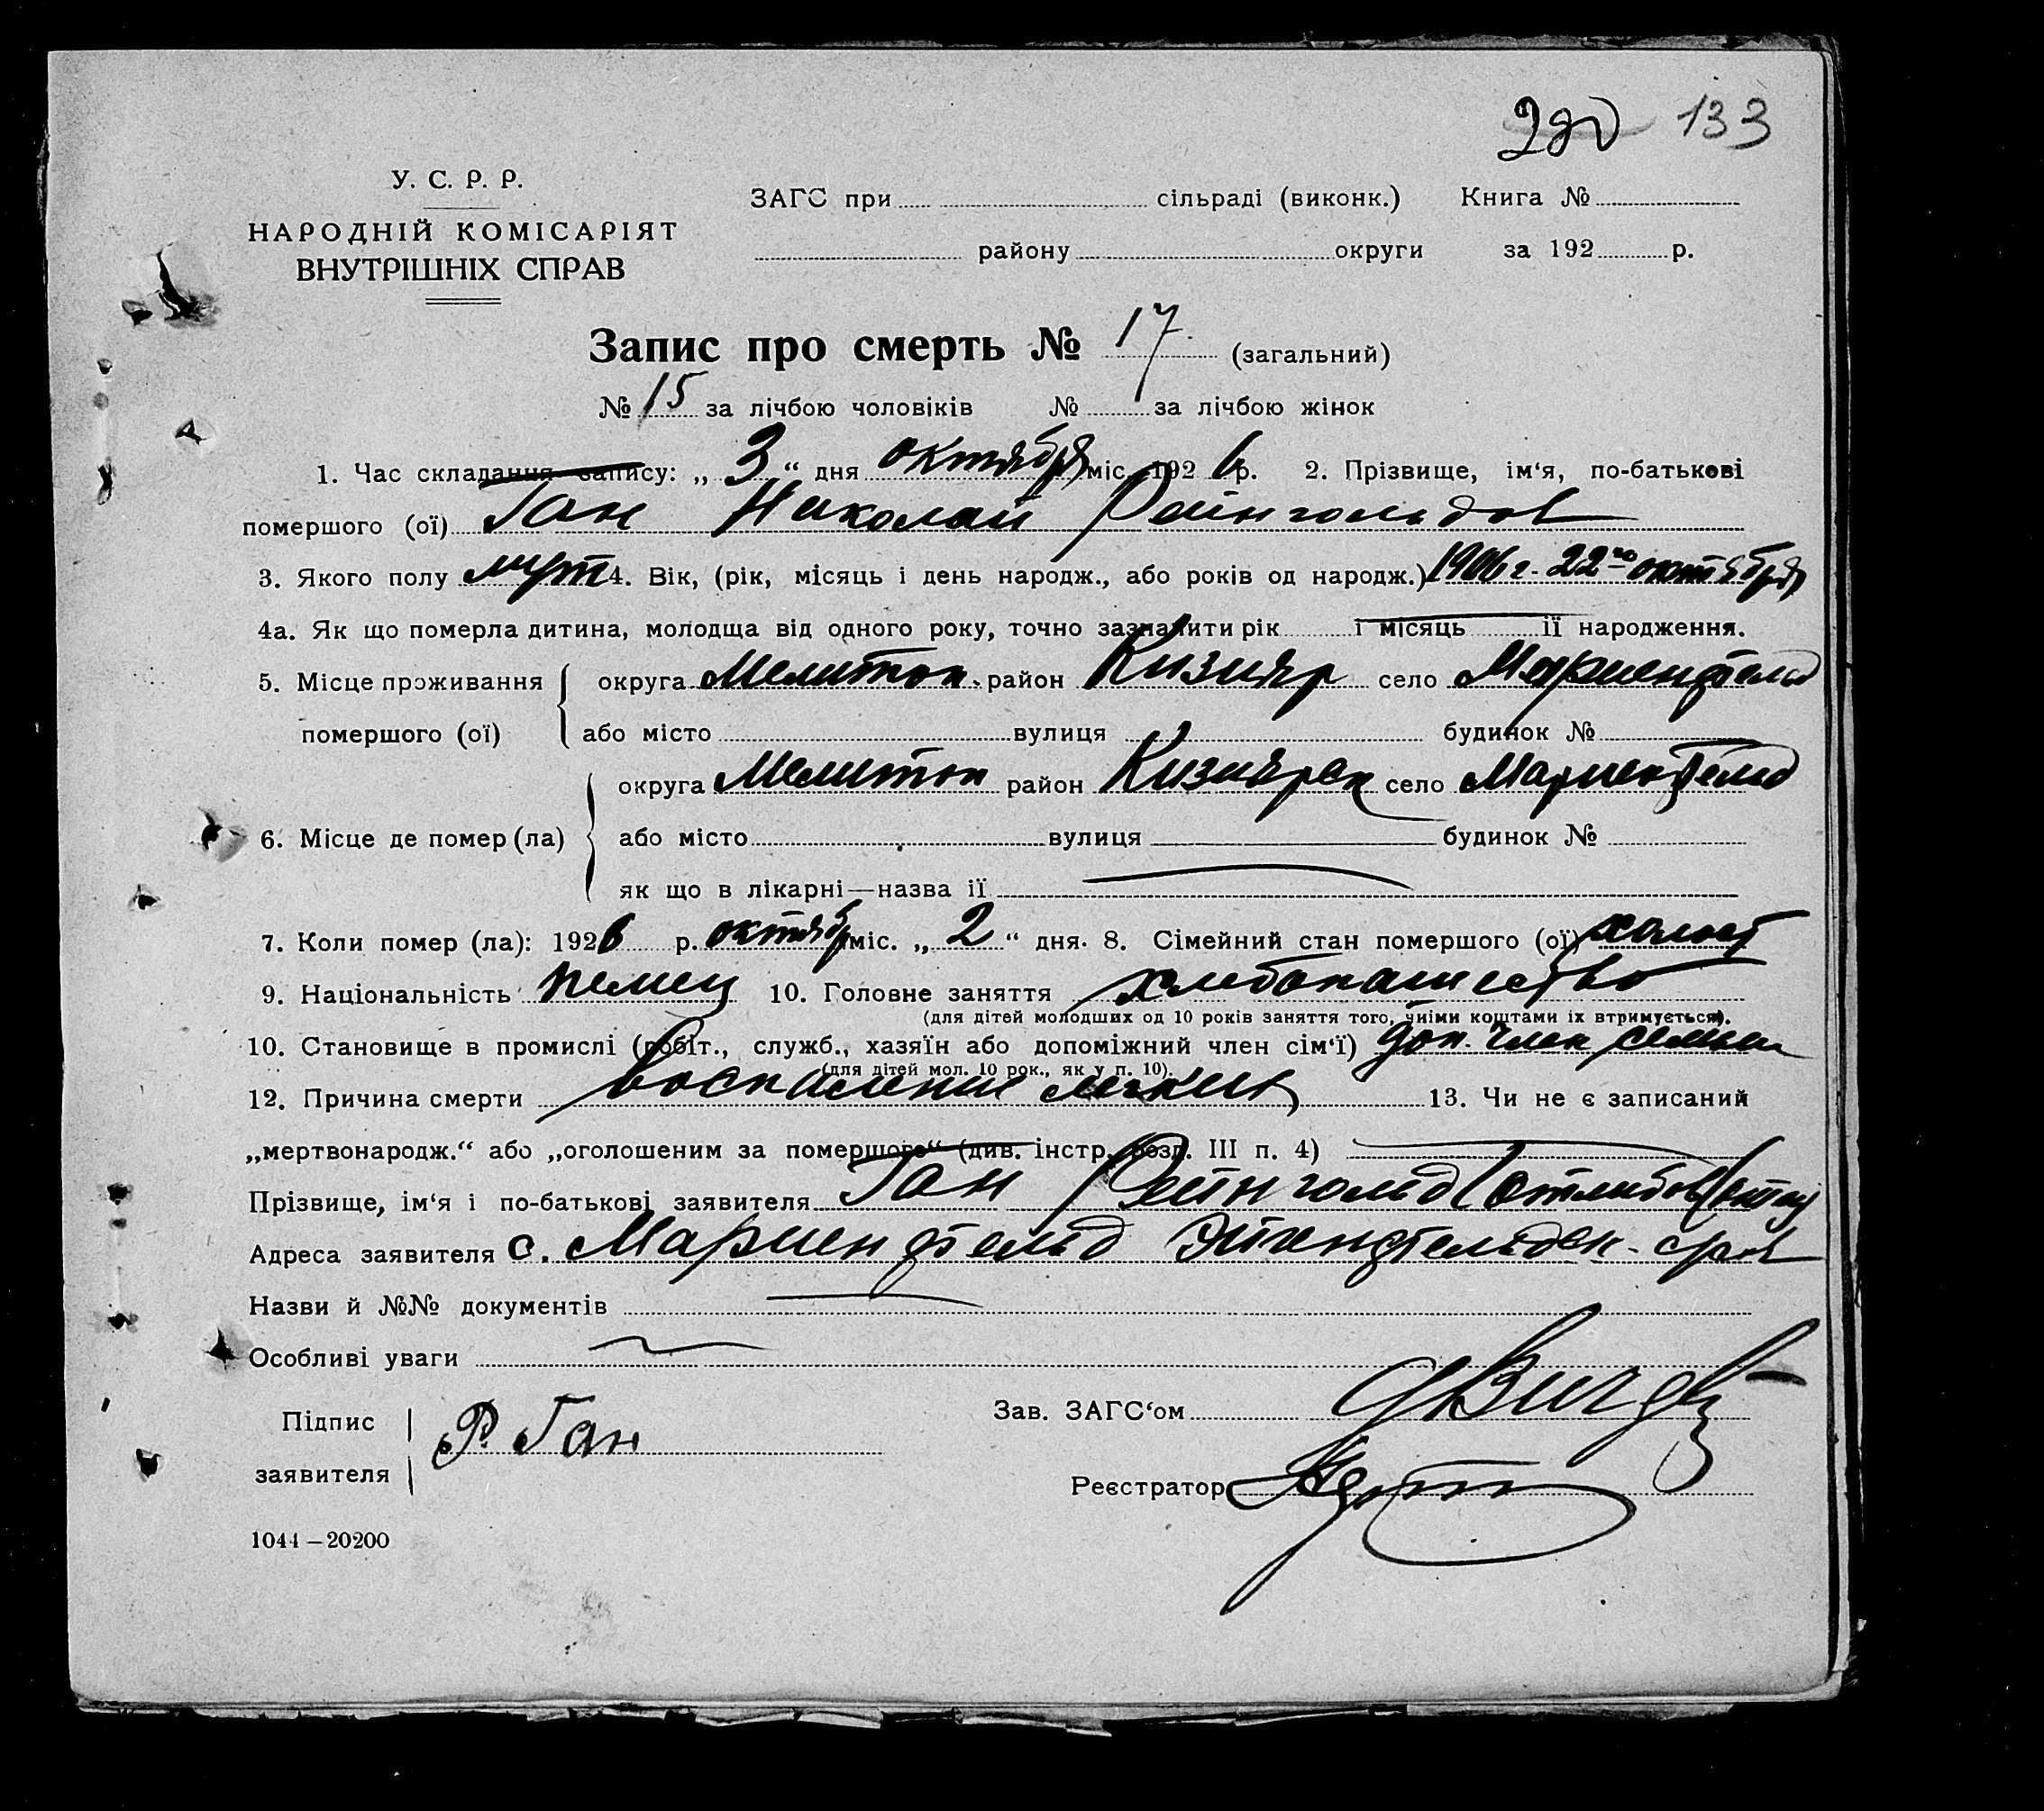 133
У. С. Р. Р.
НАРОДНІЙ КОМІСАРІЯТ
ВНУТРІШНІХ СПРАВ
ЗАГС при сільраді (виконк.) Книга №
району округи за 192 р.
Запис про смерть № 17. (загальний)
№ 15 за лічбою чоловіків № за лічбою жінок
1. Час складання запису: „ 3 “ дня октября міс. 192 6 р. 2. Прізвище, ім‘я, по-батькові
помершого (ої) Ган Николай Рейнгольдов
3. Якого полу 4. Вік, (рік, місяць і день народж., або років од народж.) 1906 г. 22го октября
4а. Як що померла дитина, молодща від одного року, точно зазначити рік і місяць її народження.
5. Місце проживання округа Мелитоп. район Кизияр село Мариенфельд
помершого (ої) або місто вулиця будинок №
округа Мелитоп район Кизиярск село Мариенфельд
6. Місце де помер (ла) або місто вулиця будинок №
як що в лікарні—назва її
7. Коли помер (ла): 1926 р. октябр міс. „ 2 “ дня. 8. Сімейний стан помершого (ої) холост
9. Національність немец 10. Головне заняття хлебопашество
(для дітей молодших од 10 років заняття того, чиїми коштами їх втримується).
10. Становище в промислі (робіт., служб., хазяїн або допоміжний член сім‘ї) доп. член семьи
(для дітей мол. 10 рок., як у п. 10).
12. Причина смерти воспаление легких 13. Чи не є записаний
„мертвонародж.“ або „оголошеним за помершого“ (див. інстр. розд. III п. 4)
Прізвище, ім‘я і по-батькові заявителя Ган Рейнгольд Готлибов (отец)
Адреса заявителя с. Мариенфельд Эйгенфельдск.
Назви й №№ документів
Особливі уваги
Підпис Р. Ган Зав. ЗАГС‘ом
заявителя Реєстратор
1044—20200